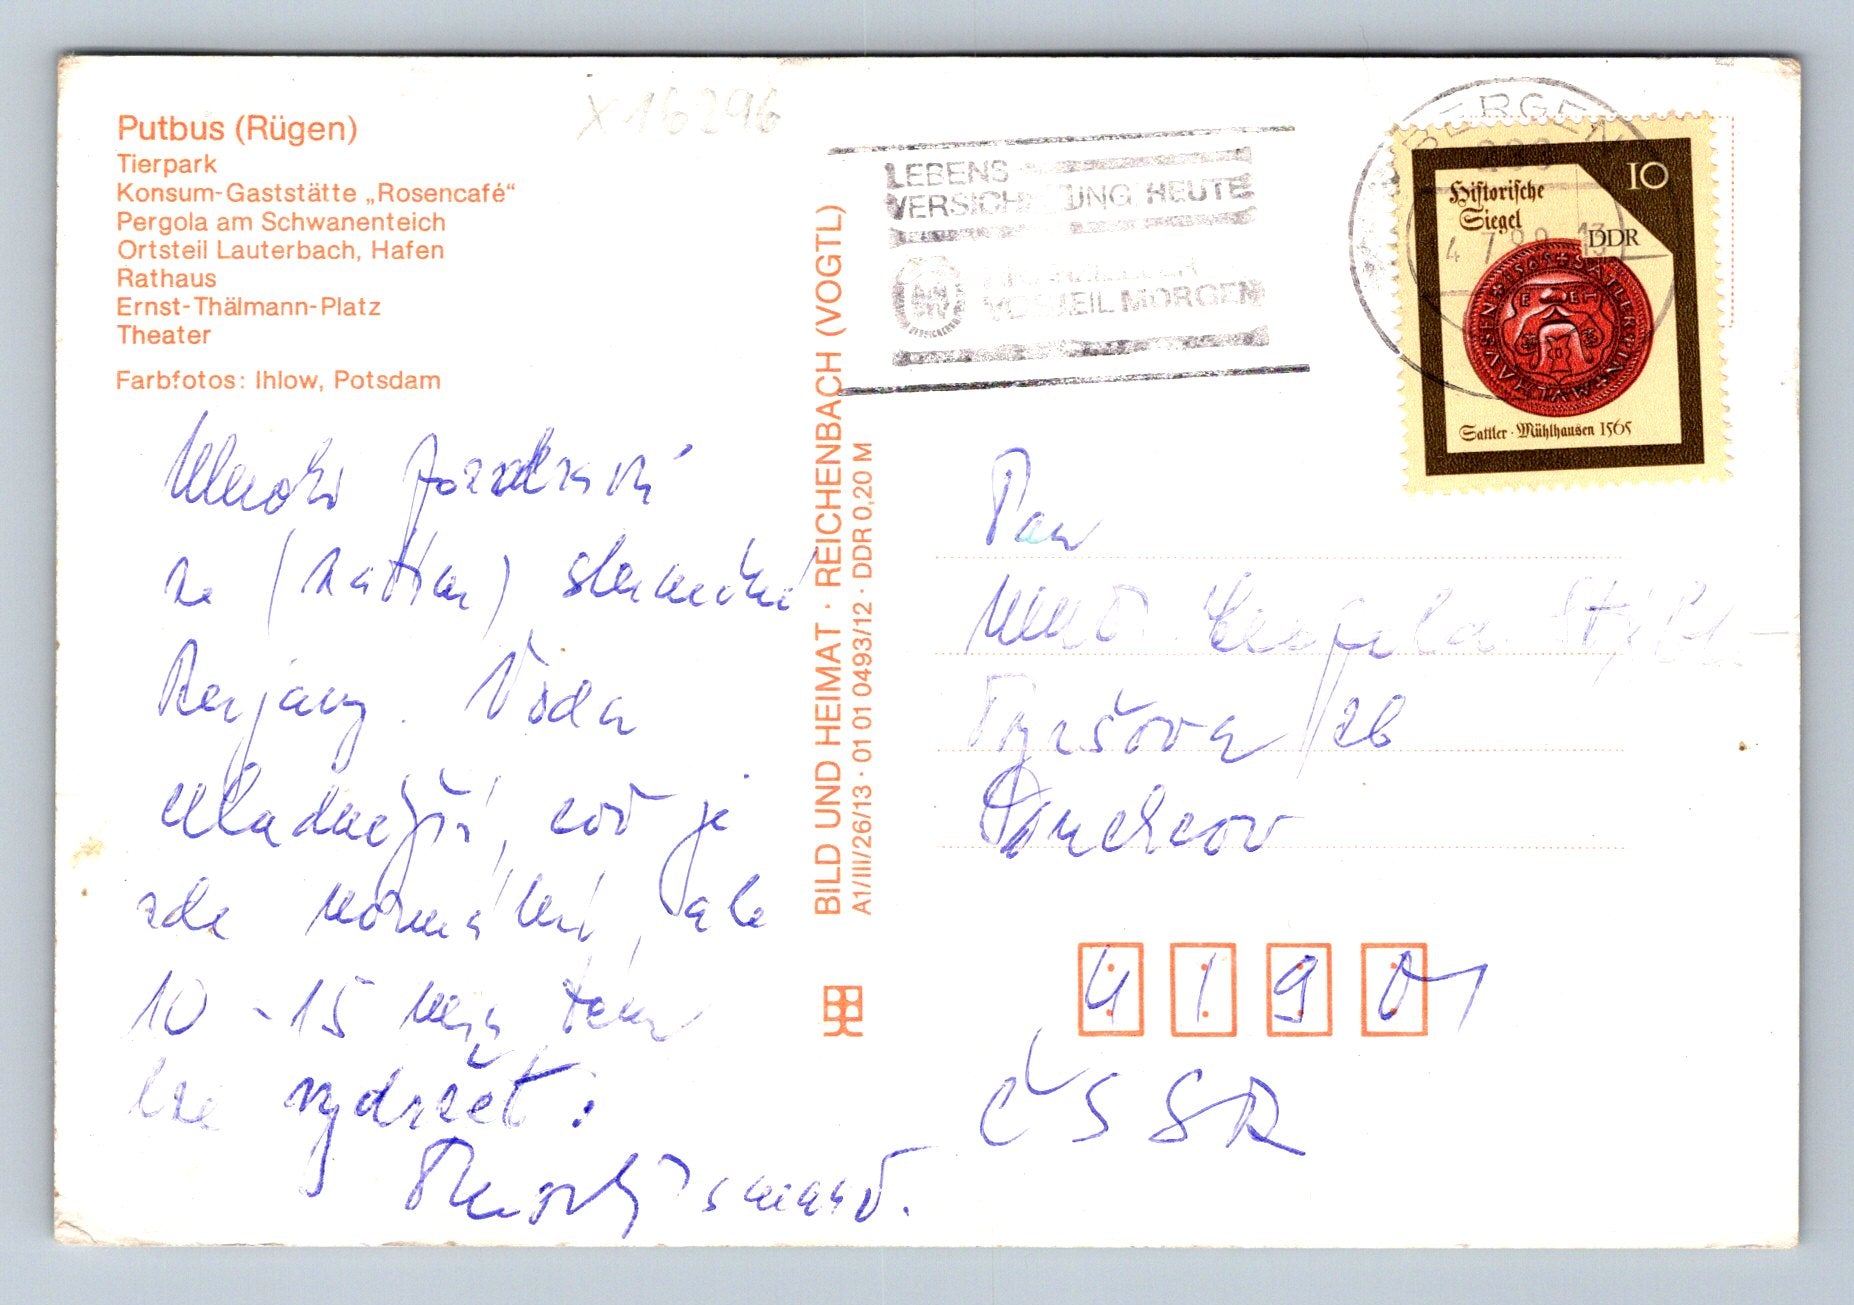 Putbus (Rügen)
Tierpark
Konsum-Gaststätte „Rosencafé“
Pergola am Schwanenteich
Ortsteil Lauterbach, Hafen
Rathaus
Ernst-Thälmann-Platz
Theater
Farbfotos: Ihlow, Potsdam
X16296
Mnoho pozdravů
ze (zatím) slunečné
Rujány. Voda
chladnější, což je
zde normální, ale
10-15 min tam
lze vydržet.
BILD UND HEIMAT · REICHENBACH (VOGTL)
A1/III/26/13 · 01 01 0493/12 · DDR 0,20 M
LEBENS
VERSICHERUNG HEUTE
WEIL MORGEN
BERGEN
4.7.89 13
10
Historische
Siegel
DDR
Sattler · Mühlhausen 1565
Pan
MUDr.
Tyršova 26
41901
ČSSR